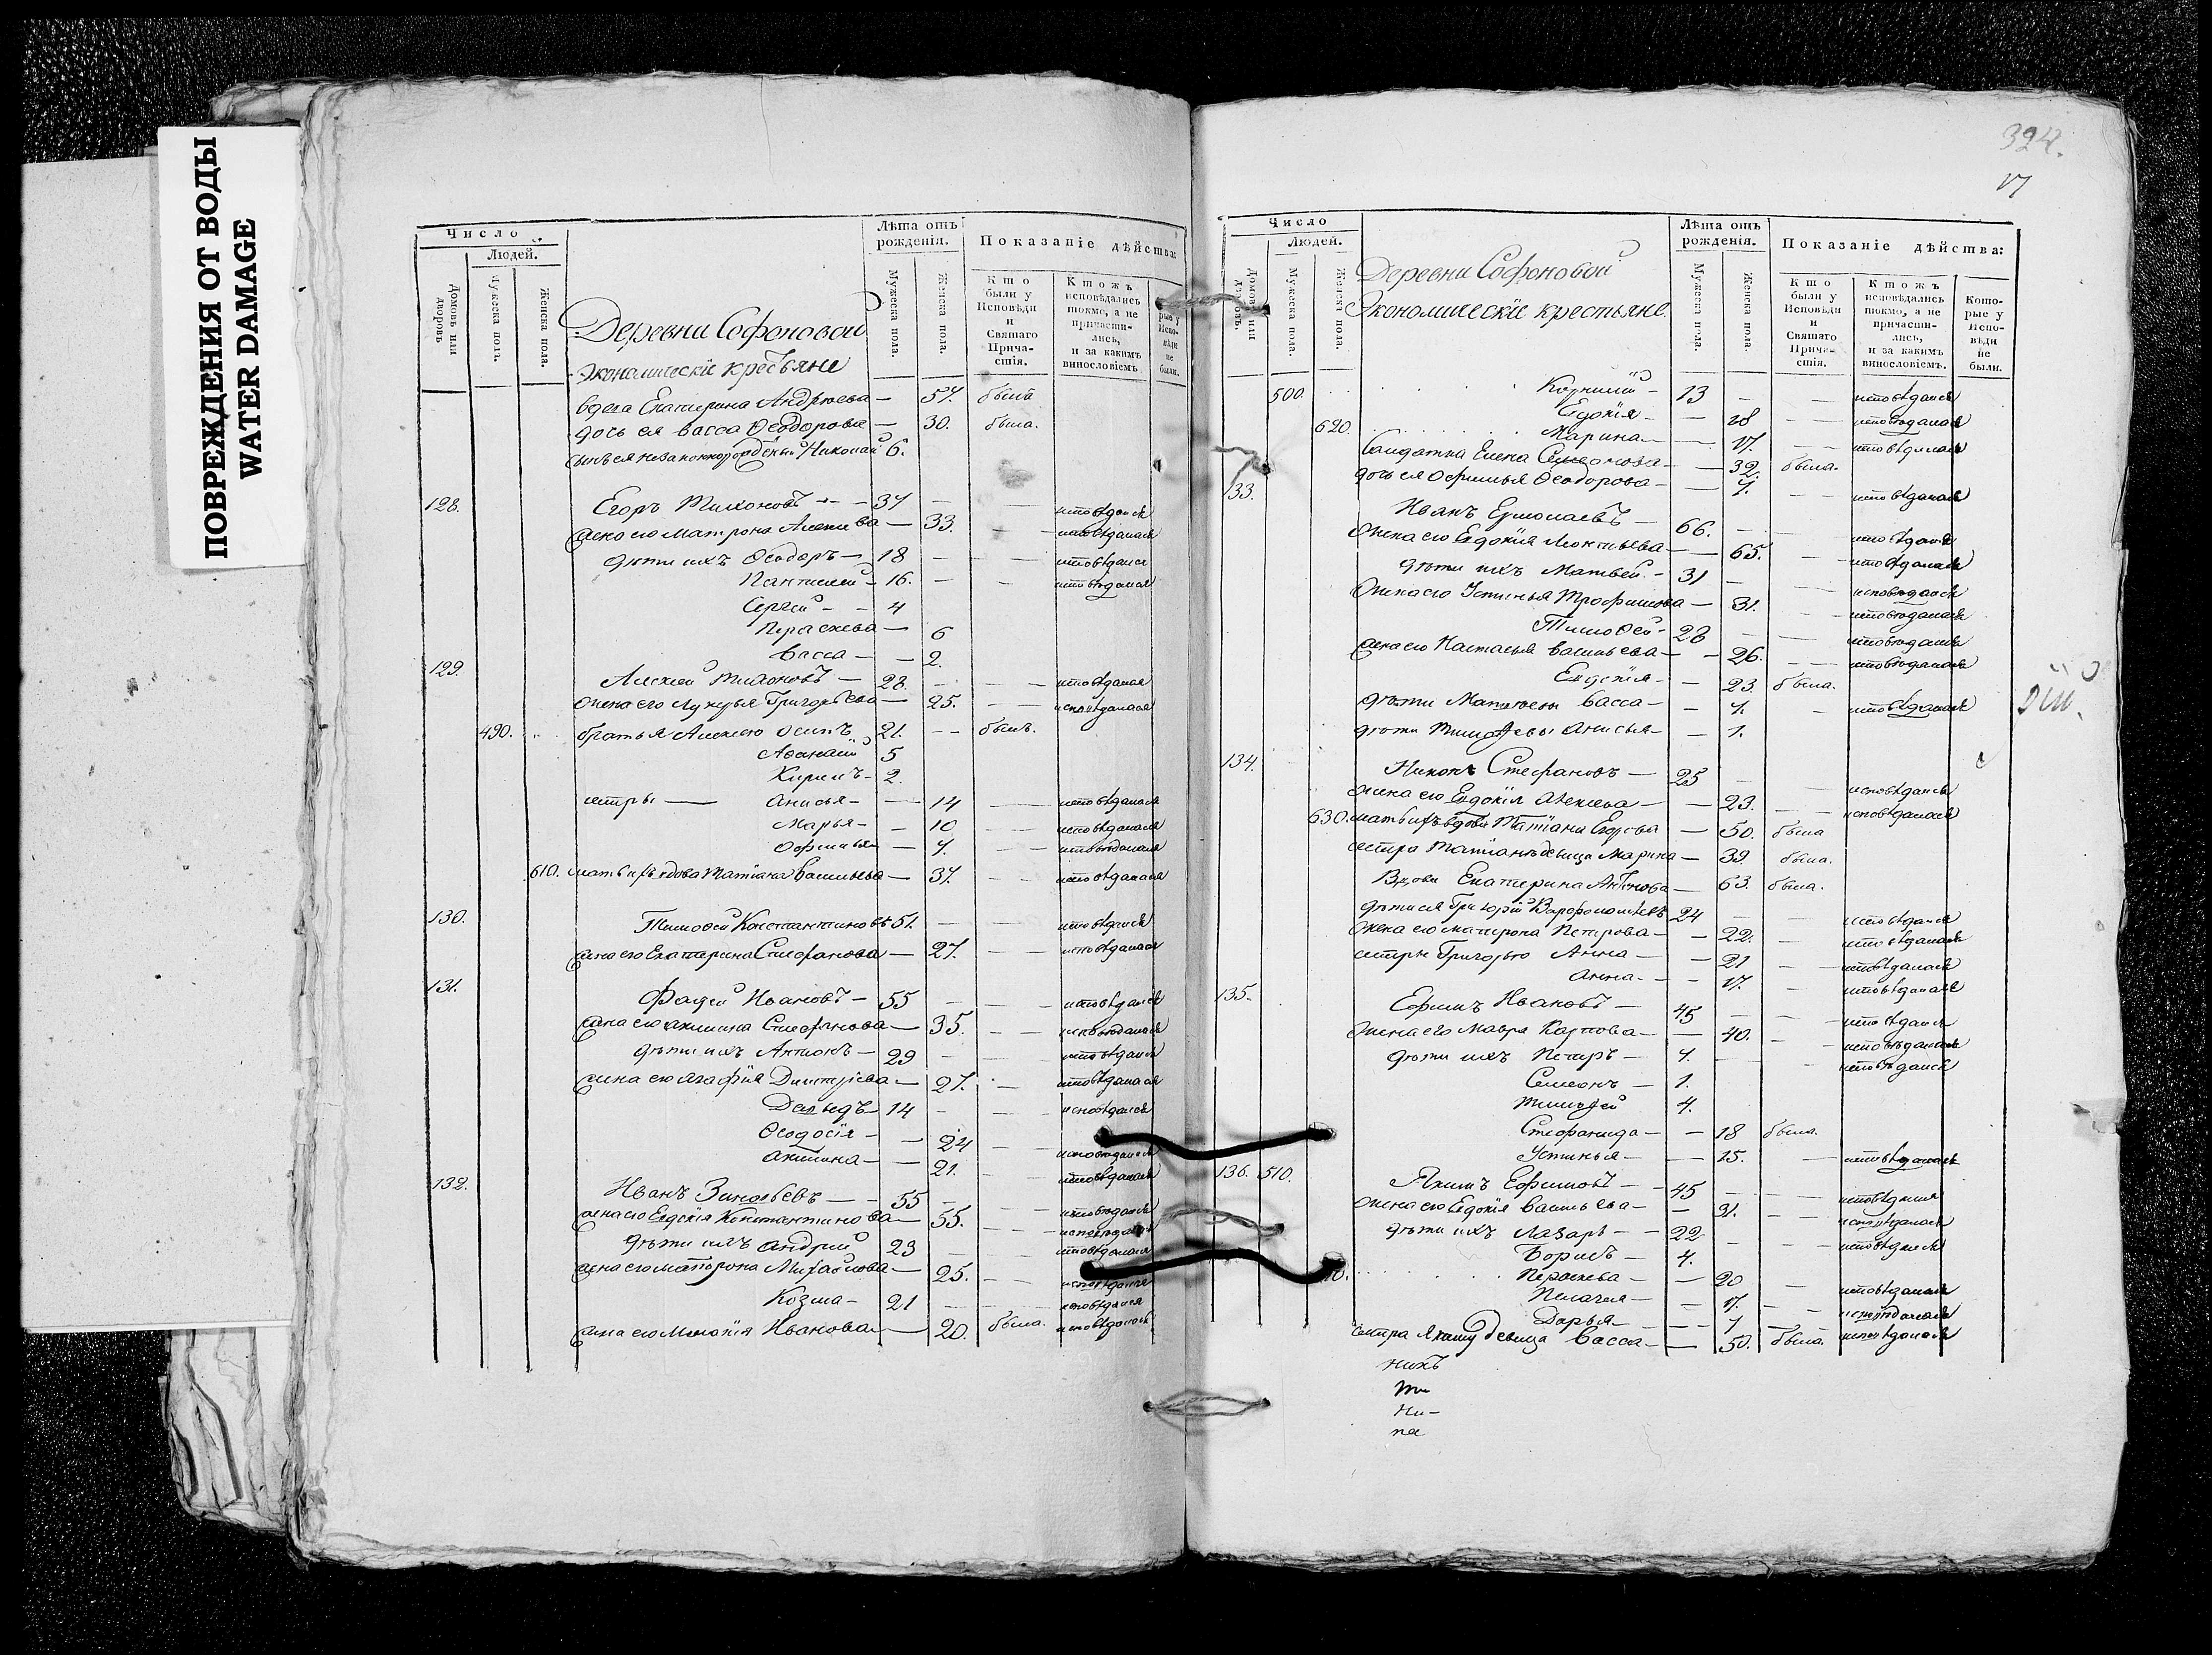 ПОВРЕЖДЕНИЯ ОТ ВОДЫ
WATER DAMAGE
Число
Людей.
Домовъ или дворовъ
Мужеска полъ.
Женска пола.
Лѣта отъ рожденія.
Мужеска пола.
Женска пола.
Показаніе дѣйства:
Кто были у Исповѣди и Святаго Причастія.
Ктожъ исповѣдались токмо, а не причастились, и за какимъ винословіемъ
Которые у Исповѣди не были.
Деревни Софоновой
Экономическіе крестьяне
вдова Екатерина Андрюева — 57. была
дочь ея Васса Ѳеодорова — 30. была.
сынъ ея незаконнорожденый Николай 6.
128. Егоръ Тихоновъ — 37 — исповѣдался
жена его Матрона — 33. исповѣдалася
дѣти ихъ Ѳеодоръ — 18 — исповѣдался
Пантелей — 16. — исповѣдался
Сергей — 4
Параскева — 6
Васса — 2.
129. Алексей Тихоновъ — 28. — исповѣдался
жена его Лукерья Григорьева — 25. исповѣдалася
490. братья Алексею Осипъ 21. — былъ.
Аѳанасій 5
Кирилъ — 2.
сестры — Анисья — 14 исповѣдалася
Марья — 10 исповѣдалася
Офимья — 7. исповѣдалася
610. мать ихъ вдова Татіана Васильева — 37. исповѣдалася
130. Тимоѳей Константиновъ 51. — исповѣдался
жена его Екатерина Стефанова — 27. исповѣдалася
131. Фадей Ивановъ — 55 — исповѣдался
жена его Акилина Стефанова — 35. исповѣдалася
дѣти ихъ Антонъ — 29 — исповѣдался
жена его Агафія Дмитріева — 27. исповѣдалася
Давыдъ 14 — исповѣдался
Ѳеодосія — 24 исповѣдалася
Акилина — 21. исповѣдалася
132. Иванъ Зиновьевъ — 55 — исповѣдался
жена его Евдокія Константинова — 55. исповѣдалася
дѣти ихъ Андрей 23 — исповѣдался
жена его Матрона Михайлова — 25. исповѣдалася
Козма — 21 — исповѣдался
жена его Ивановна — 20. была. исповѣдалась
324.
17
Число
Людей.
Домовъ или дворовъ.
Мужеска пола.
Женска пола.
Лѣта отъ рожденія.
Мужеска пола.
Женска пола.
Показаніе дѣйства:
Кто были у Исповѣди и Святаго Причастія.
Ктожъ исповѣдались токмо, а не причастились, и за какимъ винословіемъ.
Которые у Исповѣди не были.
Деревни Софоновой
Экономическіе крестьяне.
500. Корнилій — 13 — исповѣдался
Евдокія — 28 исповѣдалася
620. Марина — 17. исповѣдалася
Салдатка Елена Семенова — 32. была.
дочь ея Офимья Ѳеодорова — 7. исповѣдалася
133. Иванъ Ермолаевъ — 66. — исповѣдался
жена его Евдокія Леонтьева — 65. исповѣдалася
дѣти ихъ Матвей — 31 — исповѣдался
жена его Устинья Трофимова — 31. исповѣдалася
Тимоѳей — 28 — исповѣдался
жена его Настасья Васильева — 26. исповѣдалася
Евдокія — 23. была.
дѣти Матвеевы Васса — 7. исповѣдалася
дѣти Тимоѳеевы Анисья — 1.
134. Никонъ Стефановъ — 25 — исповѣдался
жена его Евдокія Алексеева — 23. исповѣдалася
630. мать ихъ вдова Татіана Егорова — 50. была
сестра Татіанѣ девица Марина — 39. была.
Вдова Екатерина Антонова — 63. была.
дѣти ея Григорій Варфоломеевъ 24 — исповѣдался
жена его Матрона Петрова — 22. исповѣдалася
сестры Григорью Анна — 21 исповѣдалася
Анна — 17. исповѣдалася
135. Ефимъ Ивановъ — 45 — исповѣдался
жена его Мавра Карпова — 40. исповѣдалася
дѣти ихъ Петръ — 7. исповѣдался
Семенъ — 1.
Тимоѳей 4.
Стефанида — 18 была.
Устинья — 15. исповѣдалася
136. 510. Якимъ Ефимовъ — 45 — исповѣдался
жена его Евдокія Васильева — 31. исповѣдалася
дѣти ихъ Лазарь — 22 — исповѣдался
Борисъ — 4.
Параскева — 20 исповѣдалася
Пелагея — 17. исповѣдалася
Дарья — 7 исповѣдалася
сестра Якиму девица Васса — 50. была.
никъ
ти
Ни-
па